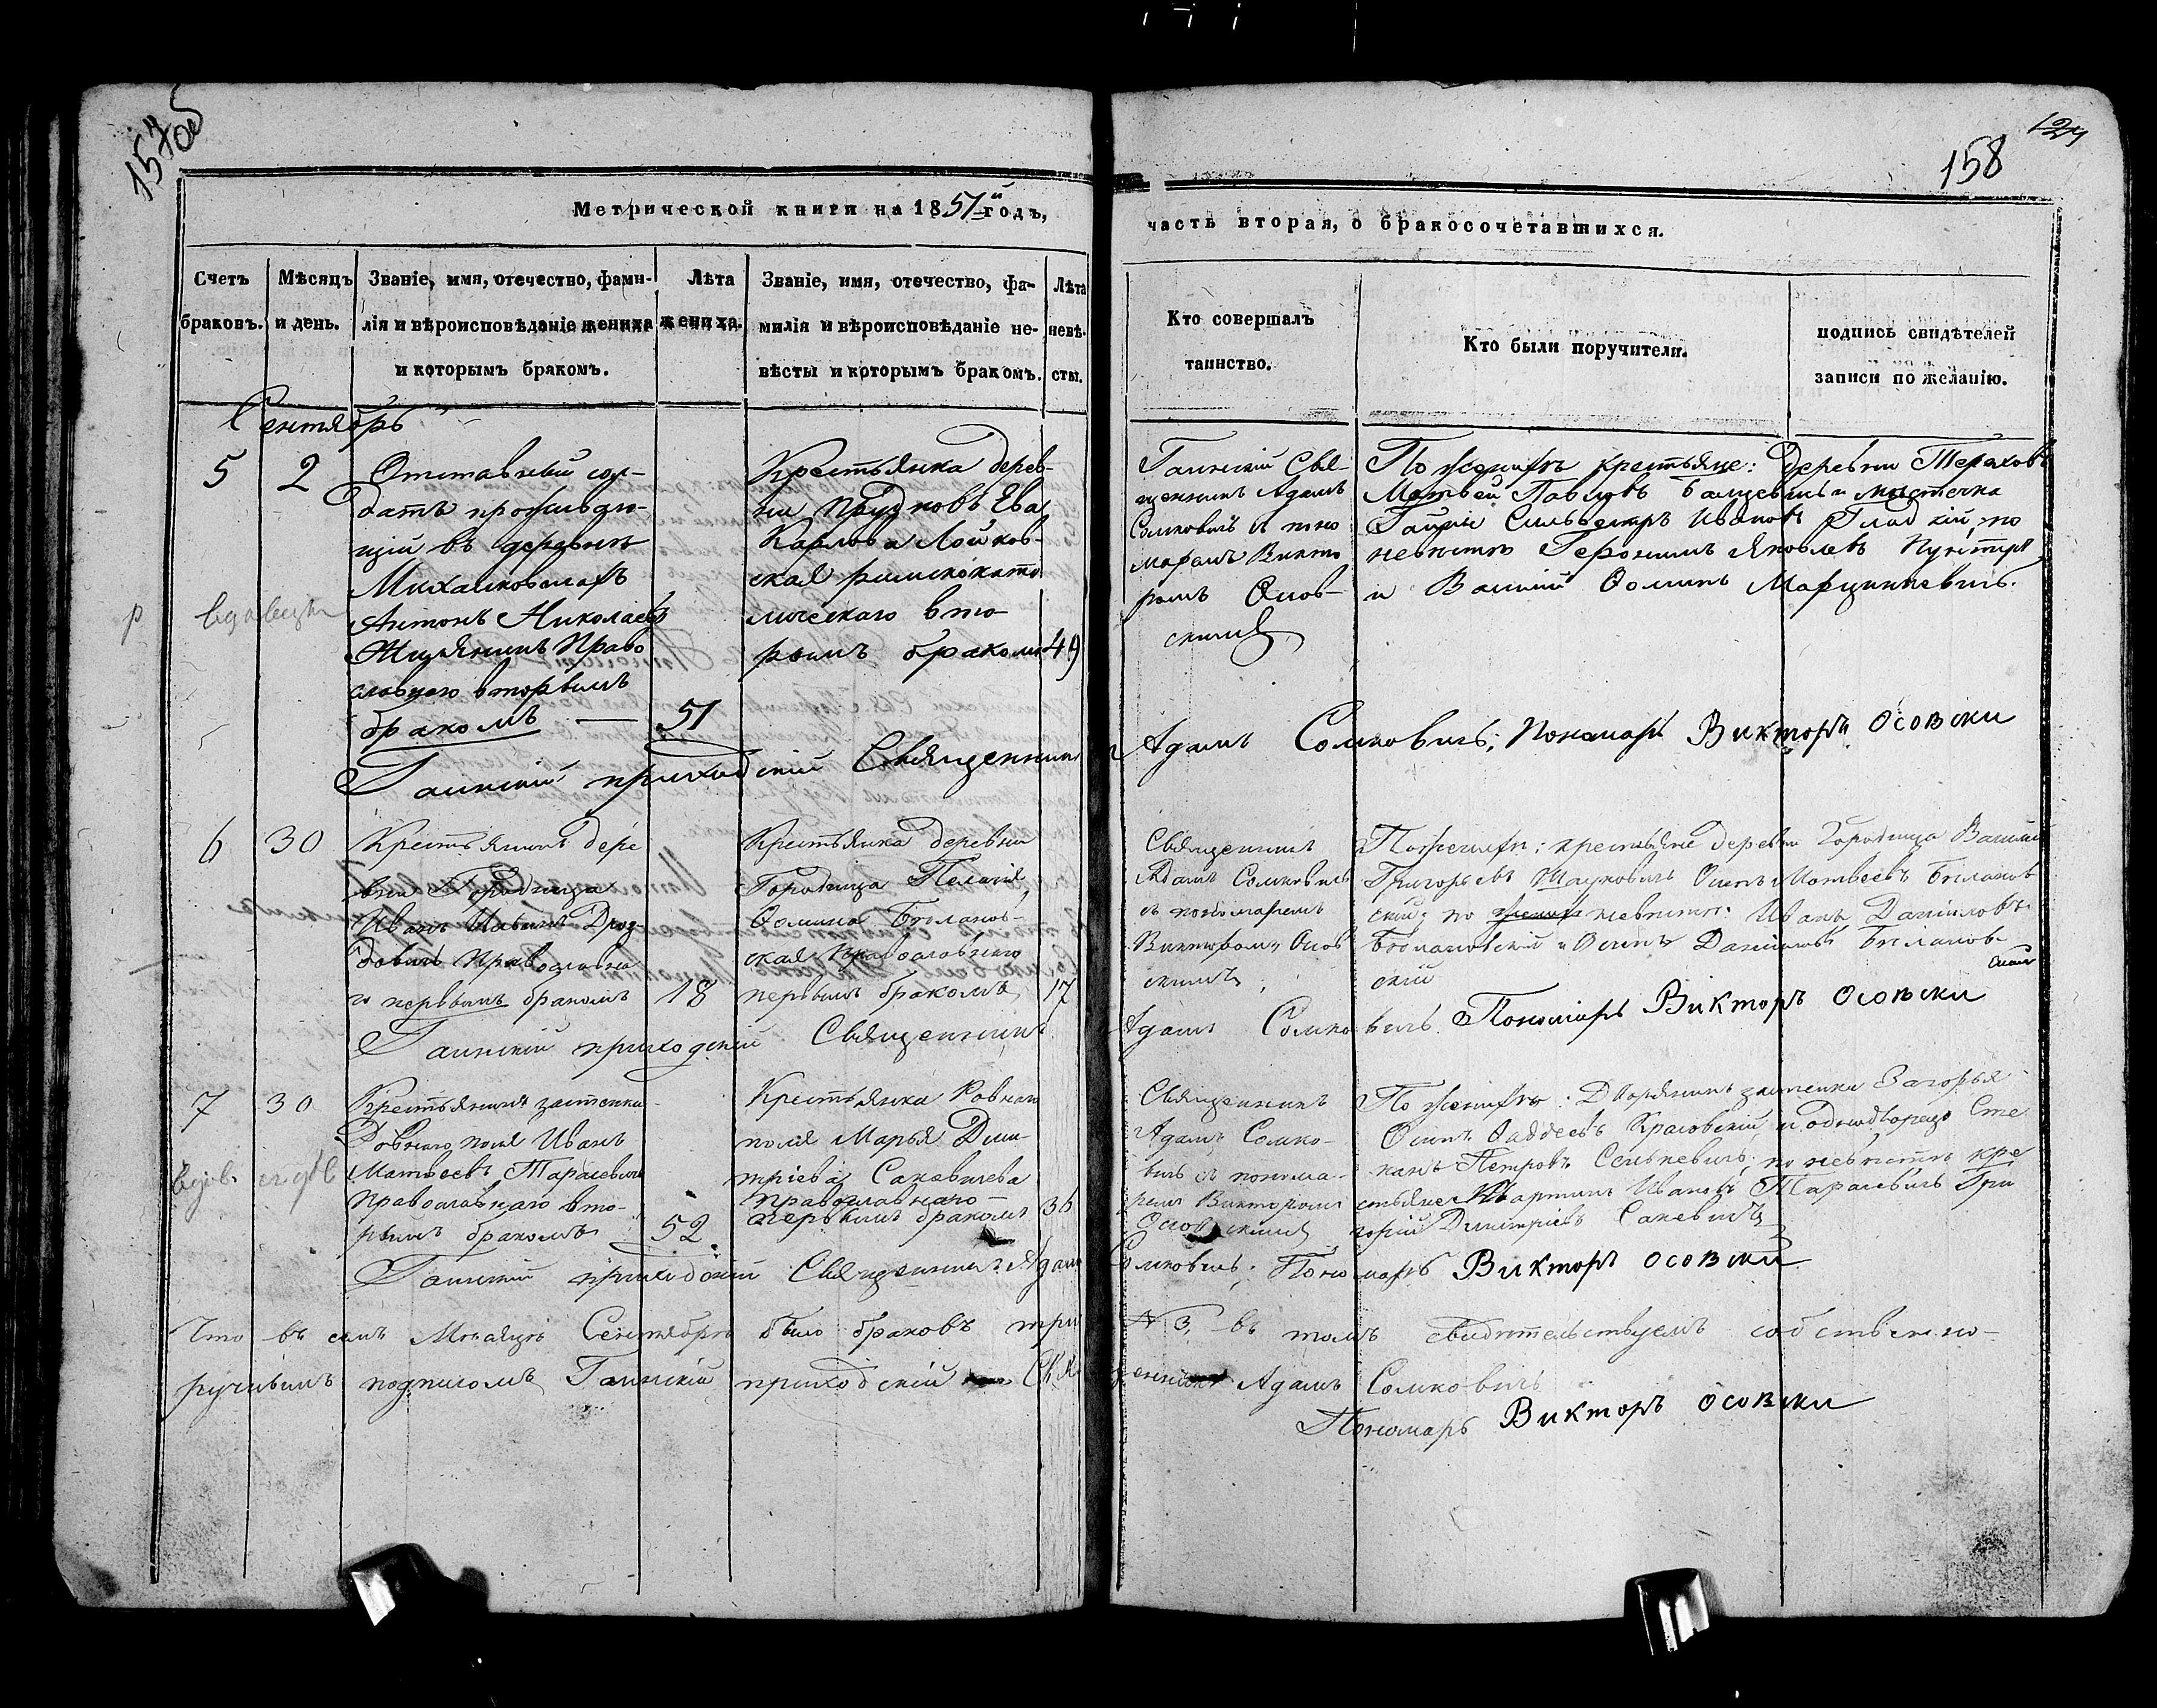 157
158
Метрической книги на 1851й годъ,
часть вторая, о бракосочетавшихся.
Счетъ браковъ.
Мѣсяцъ и день.
Званіе, имя, отечество, фами-
лія и вѣроисповѣданіе жениха
и которымъ бракомъ.
Лѣта жениха.
Званіе, имя, отечество, фа-
милія и вѣроисповѣданіе не-
вѣсты и которымъ бракомъ.
Лѣта невѣ-
сты.
Кто совершалъ
таинство.
Кто были поручители.
подпись свидѣтелей
записи по желанію.
Сентябрь
5
2
Отставный сол-
датъ прожываю-
щій въ деревнѣ
Михалковичахъ
Антонъ Николаевъ
Православнаго вторымъ
бракомъ — 51
Крестьянка дерев-
ни Прудковъ Ева
Карлова Лойков-
ская римскокато
лическаго вто-
рымъ бракомъ
Гаинскій Свя-
щенникъ Адамъ
Сомковичъ и поно
маремъ Викто
ромъ Осов-
скимъ
По женихѣ крестьяне: деревни Тераховъ
Матвей Павловъ и мѣстечка
Гайны Сильвестръ Ивановъ Гладкій, по
невѣстѣ Геронимъ Яковлевъ
и Василій Ѳоминъ Марцинкевичъ.
Гаинскій приходскій Священникъ
Адамъ Сомковичъ; Пономарь Викторъ Осовски
6
30
Крестьянинъ дере
вни Городища
Иванъ Дроз-
довичъ Православна
го первымъ бракомъ
18
Крестьянка деревни
Городища Пелагія
Ѳомина Билянов-
ская Православнаго
первымъ бракомъ
17
Священникъ
Адамъ Сомковичъ
съ пономаремъ
Викторомъ Осов
скимъ
По женихѣ: крестьяне деревни Городища Василій
Григорьевъ Осипъ Матвеевъ Билянов
скій; по невѣстѣ: Иванъ Даниловъ
Биляновскій и Осипъ Даниловъ Билянов-
скій
Гаинскій приходскій Священникъ
Адамъ Сомковичъ. Пономарь Викторъ Осовски
7
30
Крестьянинъ застенка
Ровнаго поля Иванъ
Матвеевъ Тарасевичъ
Православнаго вто-
рымъ бракомъ
52
Крестьянка Ровнаго
поля Марья Дми-
тріева Сакевичева
Православнаго
первымъ бракомъ
36
Священникъ
Адамъ Сомко-
вичъ съ понома-
ремъ Викторомъ
Осовскимъ
По женихѣ: Дворянинъ застенка Загорья
Осипъ Ѳаддеевъ Красовскій и однодворецъ Сте
панъ Петровъ Сенькевичъ; по невѣстѣ кре
стьяне Мартинъ Ивановъ Тарасевичъ Гри
горій Дмитріевъ Сакевичъ
Гаинскій приходскій Священникъ Адамъ
Сомковичъ; Пономарь Викторъ Осовски
Что въ семъ Мѣсяцѣ Сентябрѣ было браковъ три
№ 3, въ томъ свидѣтельствуемъ собственно-
ручнымъ подписомъ Гаинскій приходскій Свя
щенникъ Адамъ Сомковичъ
Пономарь Викторъ Осовски